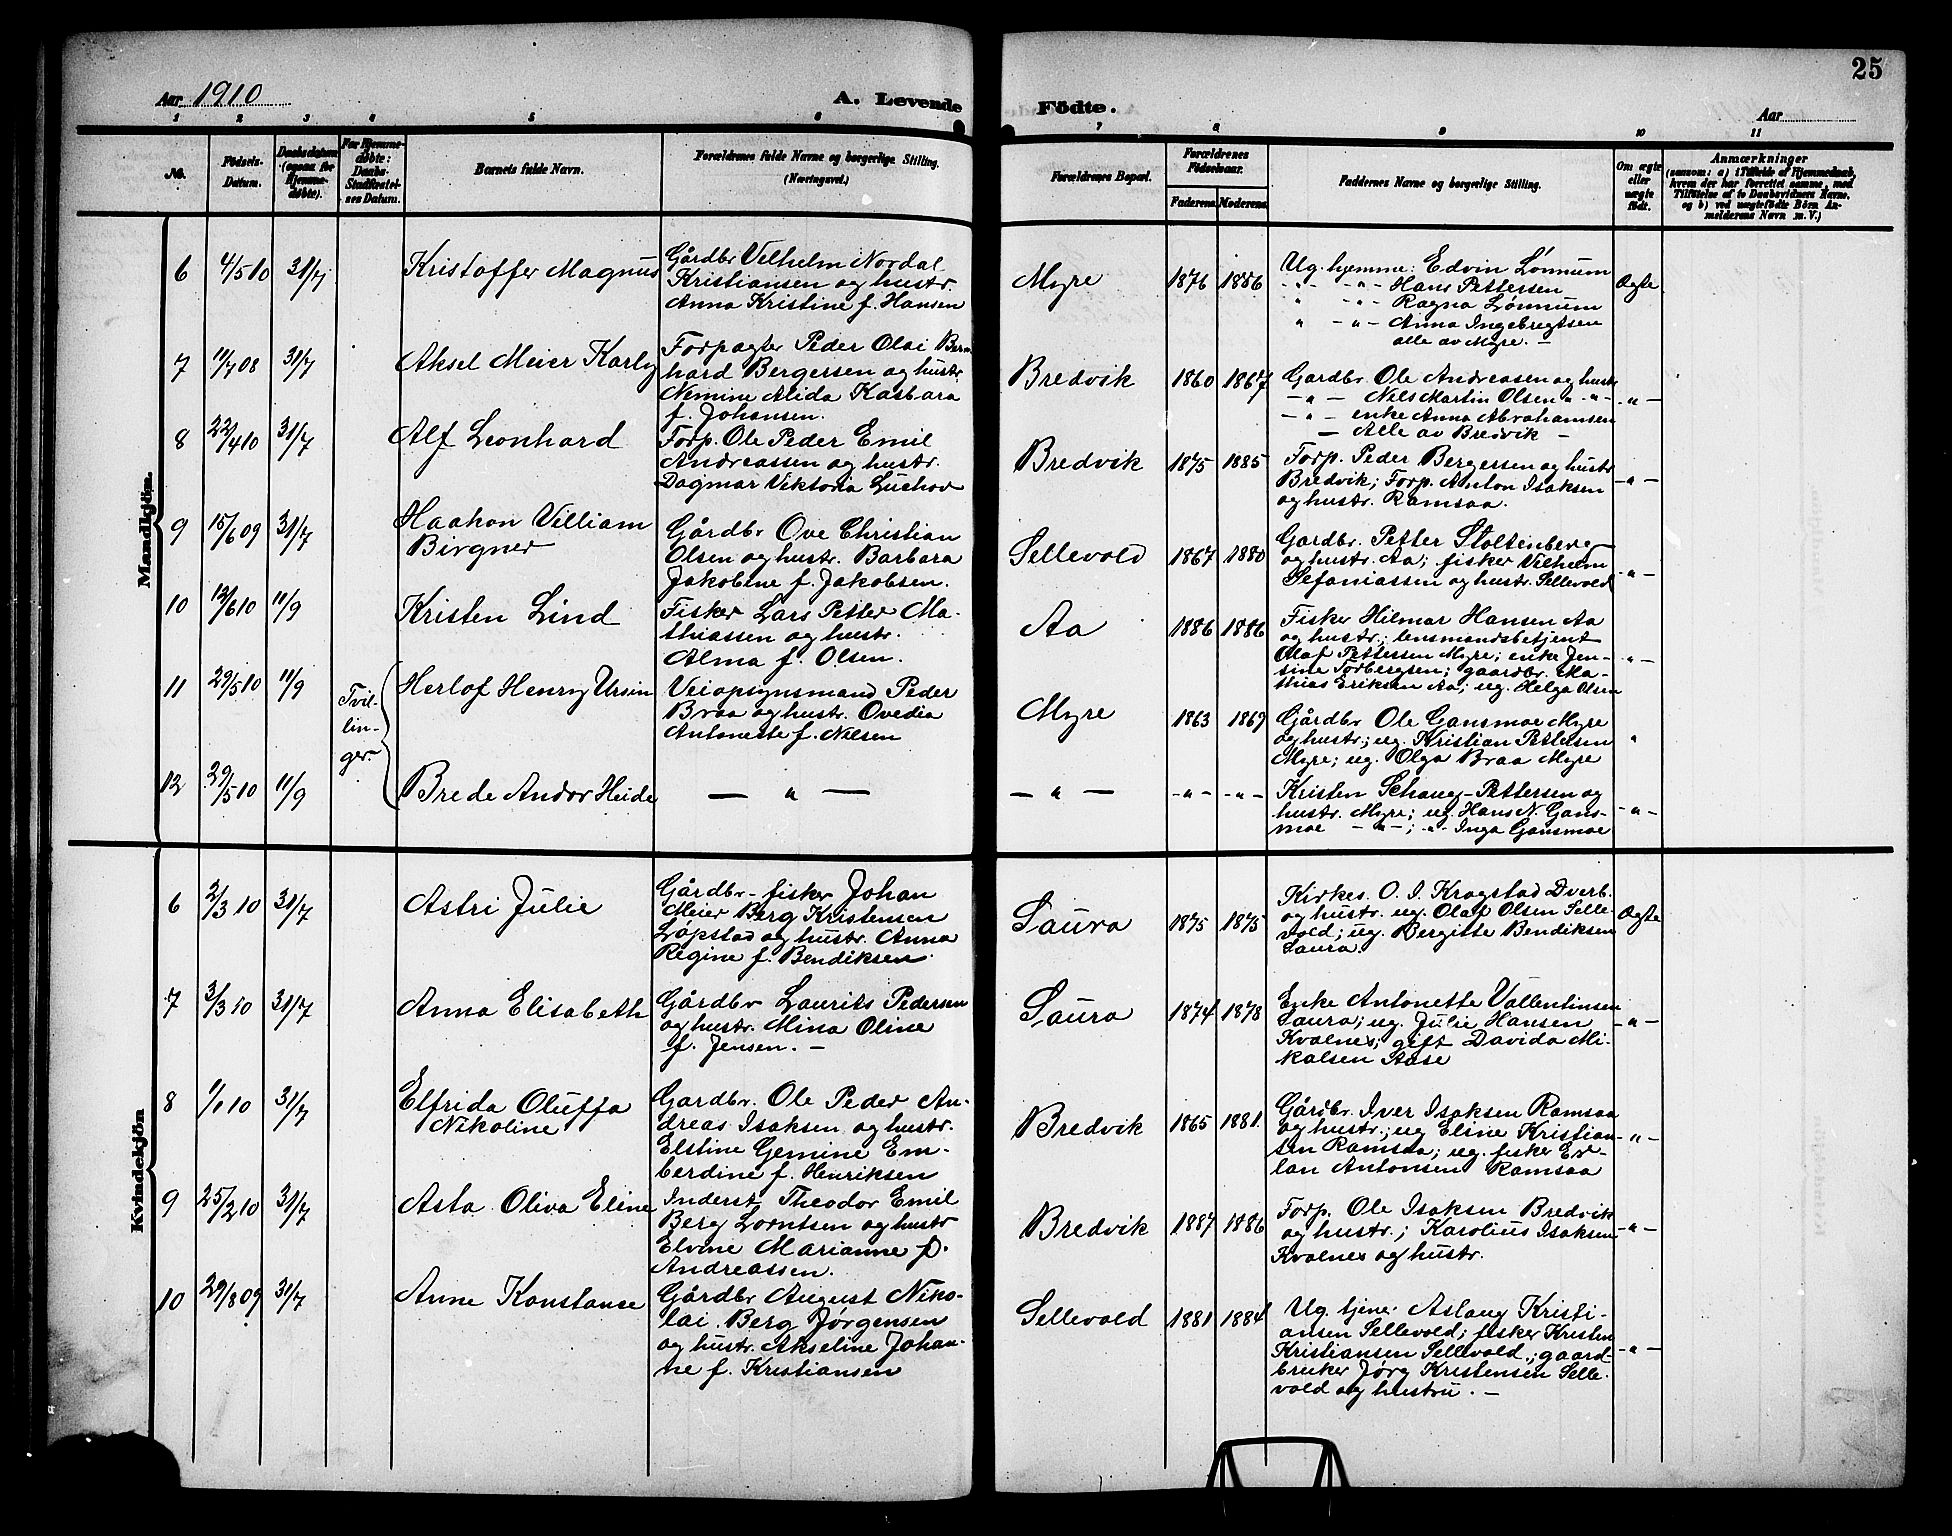 25
Aar 1910
A. Levende Födte.
Aar
1 2 3 4 5 6 7 8 9 10 11
No.
Fødsels-
Datum.
Daabsdatum
(ogsaa for
Hjemme-
døbte).
For Hjemme-
døbte:
Daabs-
Stadfæstel-
ses Datum.
Barnets fulde Navn.
Forældrenes fulde Navne og borgerlige Stilling.
(Næringsvei.)
Forældrenes Bopæl.
Forældrenes
Födselsaar.
Faderens. Moderens.
Faddernes Navne og borgerlige Stilling.
Om ægte
eller
uægte
født.
Anmærkninger
(saasom: a) i Tilfælde af Hjemmedaab,
hvem der har forrettet samme, med
Tilføielse af to Daabsvidners Navne,
og b) ved uægtefødte Börn An-
melderens Navn m. V.)
Mandkjön.
6 4/5 10 31/7 Kristoffer Magnus
Gårdbr Vilhelm Nordal
Kristiansen og hustr.
Anna Kristine f. Hansen
Myre 1876 1886
Ug. hjemme: Edvin Lønnum
" -"- Hans Pettersen
" -"- Ragna Lønnum
" -"- Anna Ingebregtsen
alle av Myre. -
Ægte
7 11/7 08 31/7 Aksel Meier Karly
Forpagter Peder Olai Bern
hard Bergersen og hustr.
Nemine Alida Kasbara
f. Johansen.
Bredvik 1860 1867
Gardbr. Ole Andreasen og hustr
-"- Nils Martin Olsen " -"-
-"- enke Anna Abrahamsen
- Alle av Bredvik -
-"-
8 22/4 10 31/7 Alf Leonhard
Forp. Ole Peder Emil
Andreassen og hustr.
Dagmar Viktoria Luchov
Bredvik 1875 1885
Forp. Peder Bergersen og hustr
Bredvik; Forp. Anton Isaksen
og hustr. Ramsaa.
-"-
9 15/6 09 31/7 Haakon Villiam
Birgner
Gårdbr Ove Christian
Olsen og hustr. Barbara
Jakobine f. Jakobsen.
Sellevold 1867 1880
Gardbr. Petter Stoltenberg
og hustr. Aa; fisker Vilhelm
Sefaniassen og hustr. Sellevold
-"-
10 12/6 10 11/9 Kristen Lind
Fisker Lars Petter Ma-
thiassen og hustr.
Alma f. Olsen.
Aa 1886 1886
Fisker Hilmar Hansen Aa
og hustr.; lensmandsbetjent
Olaf Pettersen Myre; enke Jen-
sine Torbergsen; gaardbr. Ma-
thias Eriksen Aa; ug. Helga Olsen
-"-
11 29/5 10 11/9
Tvil-
lin-
ger.
Herlof Henry Ursin
Veiopsynsmand Peder
Braa og hustr. Ovedia
Antonette f. Nilsen
Myre 1863 1869
Gårdbr Ole Gansmoe Myre
og hustr; ug. Kristian Pettersen
Myre; ug. Olga Braa Myre
"
12 29/5 10 11/9 Brede Andor Heide
- " -
- " - -"- -"-
Kristen Schaug-Pettersen og
hustr. Myre; ug. Hans N. Gans-
moe -"-; -"- Inga Gansmoe
-"-
Kvindekjön
6 2/3 10 31/7 Astri Julie
Gårdbr-fisker Johan
Meier Berg Kristensen
Lapstad og hustr. Anna
Regine f. Bendiksen.
Saura 1875 1875
Kirkes. O. I. Krogstad Dverb.
og hustr. ug. Olaf Olsen Selle-
vold; ug. Bergitte Bendiksen
Saura.
Ægte
7 3/3 10 31/7 Anna Elisabeth
Gårdbr Laurits Pedersen
og hustr. Mina Oline
f. Jensen. -
Saura 1874 1878
Enke Antonette Vallentinsen
Saura; ug. Julie Hansen
Kvalnes; gift Davida Mi-
kalsen Aase
-"-
8 1/1 10 31/7 Elfrida Oluffa
Nikoline
Gardbr. Ole Peder An-
dreas Isaksen og hustr.
Elstine Gemine Em-
berdine f. Henriksen
Bredvik 1865 1881.
Gårdbr. Iver Isaksen Ramsaa
og hustr.; ug Eline Kristian-
sen Ramsaa; ug. fisker Er-
lan Antonsen Ramsaa
-"-
9 25/2 10 31/7 Asta Oliva Eline
Inderst Theodor Emil
Berg Lorntsen og hustr
Elvine Marianne f.
Andreassen.
Bredvik 1887 1886
Forp. Ole Isaksen Bredvik
og hustr.; Karolius Isaksen
Kvalnes og hustr.
-"-
10 29/8 09 31/7 Anne Konstanse
Gårdbr August Niko-
lai Berg Jørgensen
og hustr. Akseline Johan-
ne f. Kristiansen
Sellevold 1881 1884
Ug. tjener Aslaug Kristi-
ansen Sellevold; fisker Kristen
Kristiansen Sellevold; gaard-
bruker Jørg Kristensen Selle-
vold og hustru. -
-"-